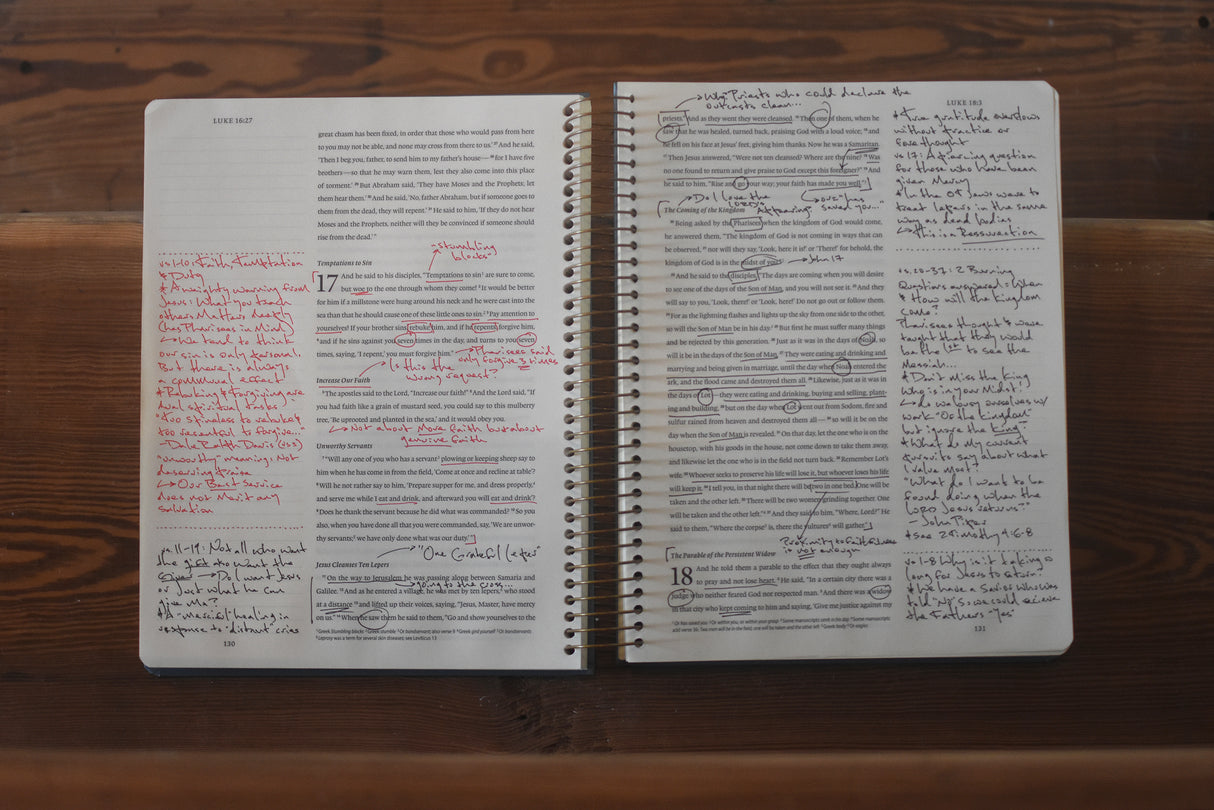 LUKE 16:27
great chasm has been fixed, in order that those who would pass from here
to you may not be able, and none may cross from there to us.' 27 And he said,
'Then I beg you, father, to send him to my father's house— 28 for I have five
brothers—so that he may warn them, lest they also come into this place
of torment.' 29 But Abraham said, 'They have Moses and the Prophets; let
them hear them.' 30 And he said, 'No, father Abraham, but if someone goes to
them from the dead, they will repent.' 31 He said to him, 'If they do not hear
Moses and the Prophets, neither will they be convinced if someone should
rise from the dead.'"
-stumbling
blocks-
Temptations to Sin
17 And he said to his disciples, "Temptations to sin are sure to come,
but woe to the one through whom they come! 2 It would be better
for him if a millstone were hung around his neck and he were cast into the
sea than that he should cause one of these little ones to sin. 3 Pay attention to
yourselves! If your brother sins, rebuke him, and if he repents, forgive him,
4 and if he sins against you seven times in the day, and turns to you seven
times, saying, 'I repent,' you must forgive him."
Pharisees said
only forgive 3 times
Is this the
wrong request?
Increase Our Faith
5 The apostles said to the Lord, "Increase our faith!" 6 And the Lord said, "If
you had faith like a grain of mustard seed, you could say to this mulberry
tree, 'Be uprooted and planted in the sea,' and it would obey you.
Not about More faith but about
genuine faith
Unworthy Servants
7 "Will any one of you who has a servant plowing or keeping sheep say to
him when he has come in from the field, 'Come at once and recline at table'?
8 Will he not rather say to him, 'Prepare supper for me, and dress properly,
and serve me while I eat and drink, and afterward you will eat and drink'?
9 Does he thank the servant because he did what was commanded? 10 So you
also, when you have done all that you were commanded, say, 'We are unwor-
thy servants; we have only done what was our duty.'"
"One Grateful leper"
Jesus Cleanses Ten Lepers
11 On the way to Jerusalem he was passing along between Samaria and
going to the cross...
Galilee. 12 And as he entered a village, he was met by ten lepers, who stood
at a distance 13 and lifted up their voices, saying, "Jesus, Master, have mercy
on us." 14 When he saw them he said to them, "Go and show yourselves to the
Greek Stumbling blocks Greek stumble Or bondservant; also verse 9 Greek gird yourself Or bondservants
Leprosy was a term for several skin diseases; see Leviticus 13
vs 1-10: Faith, Temptation
& Duty
* A weighty warning from
Jesus: What you teach
others Matters deeply
(has Pharisees in Mind)
We tend to think
our sin is only personal.
But there is always
a communal effect
* Rebuking & forgiving are
dual spiritual tasks
"Too spineless to rebuke &
too resentful to forgive..."
- Dale Ralph Davis (vs 3)
"unworthy" meaning: Not
deserving praise
Our Best Service
does not Merit any
salvation
vs. 11-19: Not all who want
the gift also want the
Giver Do I want Jesus
or just what he can
give Me?
* A - merciful healing in
response to "distant cries
130
Why? Priests who could declare the
outcasts clean...
LUKE 18:3
priests." And as they went they were cleansed. 15 Then one of them, when he
saw that he was healed, turned back, praising God with a loud voice; 16 and
he fell on his face at Jesus' feet, giving him thanks. Now he was a Samaritan.
17 Then Jesus answered, "Were not ten cleansed? Where are the nine? 18 Was
no one found to return and give praise to God except this foreigner?" 19 And
he said to him, "Rise and go your way; your faith has made you well."
Do I love the
LORD'S
Appearing?
our "has
saved you..."
The Coming of the Kingdom
20 Being asked by the Pharisees when the kingdom of God would come,
he answered them, "The kingdom of God is not coming in ways that can
be observed, 21 nor will they say, 'Look, here it is!' or 'There!' for behold, the
kingdom of God is in the midst of you."
John 17
22 And he said to the disciples, "The days are coming when you will desire
to see one of the days of the Son of Man, and you will not see it. 23 And they
will say to you, 'Look, there!' or 'Look, here!' Do not go out or follow them.
24 For as the lightning flashes and lights up the sky from one side to the other,
so will the Son of Man be in his day. 25 But first he must suffer many things
and be rejected by this generation. 26 Just as it was in the days of Noah, so
will it be in the days of the Son of Man. 27 They were eating and drinking and
marrying and being given in marriage, until the day when Noah entered the
ark, and the flood came and destroyed them all. 28 Likewise, just as it was in
the days of Lot—they were eating and drinking, buying and selling, plant-
ing and building, 29 but on the day when Lot went out from Sodom, fire and
sulfur rained from heaven and destroyed them all— 30 so will it be on the
day when the Son of Man is revealed. 31 On that day, let the one who is on the
housetop, with his goods in the house, not come down to take them away,
and likewise let the one who is in the field not turn back. 32 Remember Lot's
wife. 33 Whoever seeks to preserve his life will lose it, but whoever loses his life
will keep it. 34 I tell you, in that night there will be two in one bed. One will be
taken and the other left. 35 There will be two women grinding together. One
will be taken and the other left." 37 And they said to him, "Where, Lord?" He
said to them, "Where the corpse is, there the vultures will gather."
Proximity to faithfulness
is not enough
The Parable of the Persistent Widow
18 And he told them a parable to the effect that they ought always
to pray and not lose heart. 2 He said, "In a certain city there was a
judge who neither feared God nor respected man. 3 And there was a widow
in that city who kept coming to him and saying, 'Give me justice against my
Or has saved you Or within you, or within your grasp Some manuscripts omit in his day Some manuscripts
add verse 36: Two men will be in the field; one will be taken and the other left Greek body Or eagles
* True gratitude overflows
without practice or
forethought
vs 17: A piercing question
for those who have been
given Mercy
* In the OT Jews were to
treat lepers in the same
way as dead bodies
This is a Ressurection
vs. 20-37: 2 Burning
Questions answered: When
& How will the kingdom
come?
Pharisees thought & were
taught that they would
be the 1st to see the
Messiah...
* Don't Miss the King
who is in your Midst!
do we bury ourselves w/
work "Of the kingdom"
but ignore the King?
* What do my current
pursuits say about what
I value most?
"What do I want to be
found doing when the
LORD Jesus returns?"
- John Piper
* See 2 Timothy 4:6-8
vs 1-8 Why is it taking so
long for Jesus to return?
* We have a Savior who was
told "No", so we could recieve
the Fathers "Yes"
131